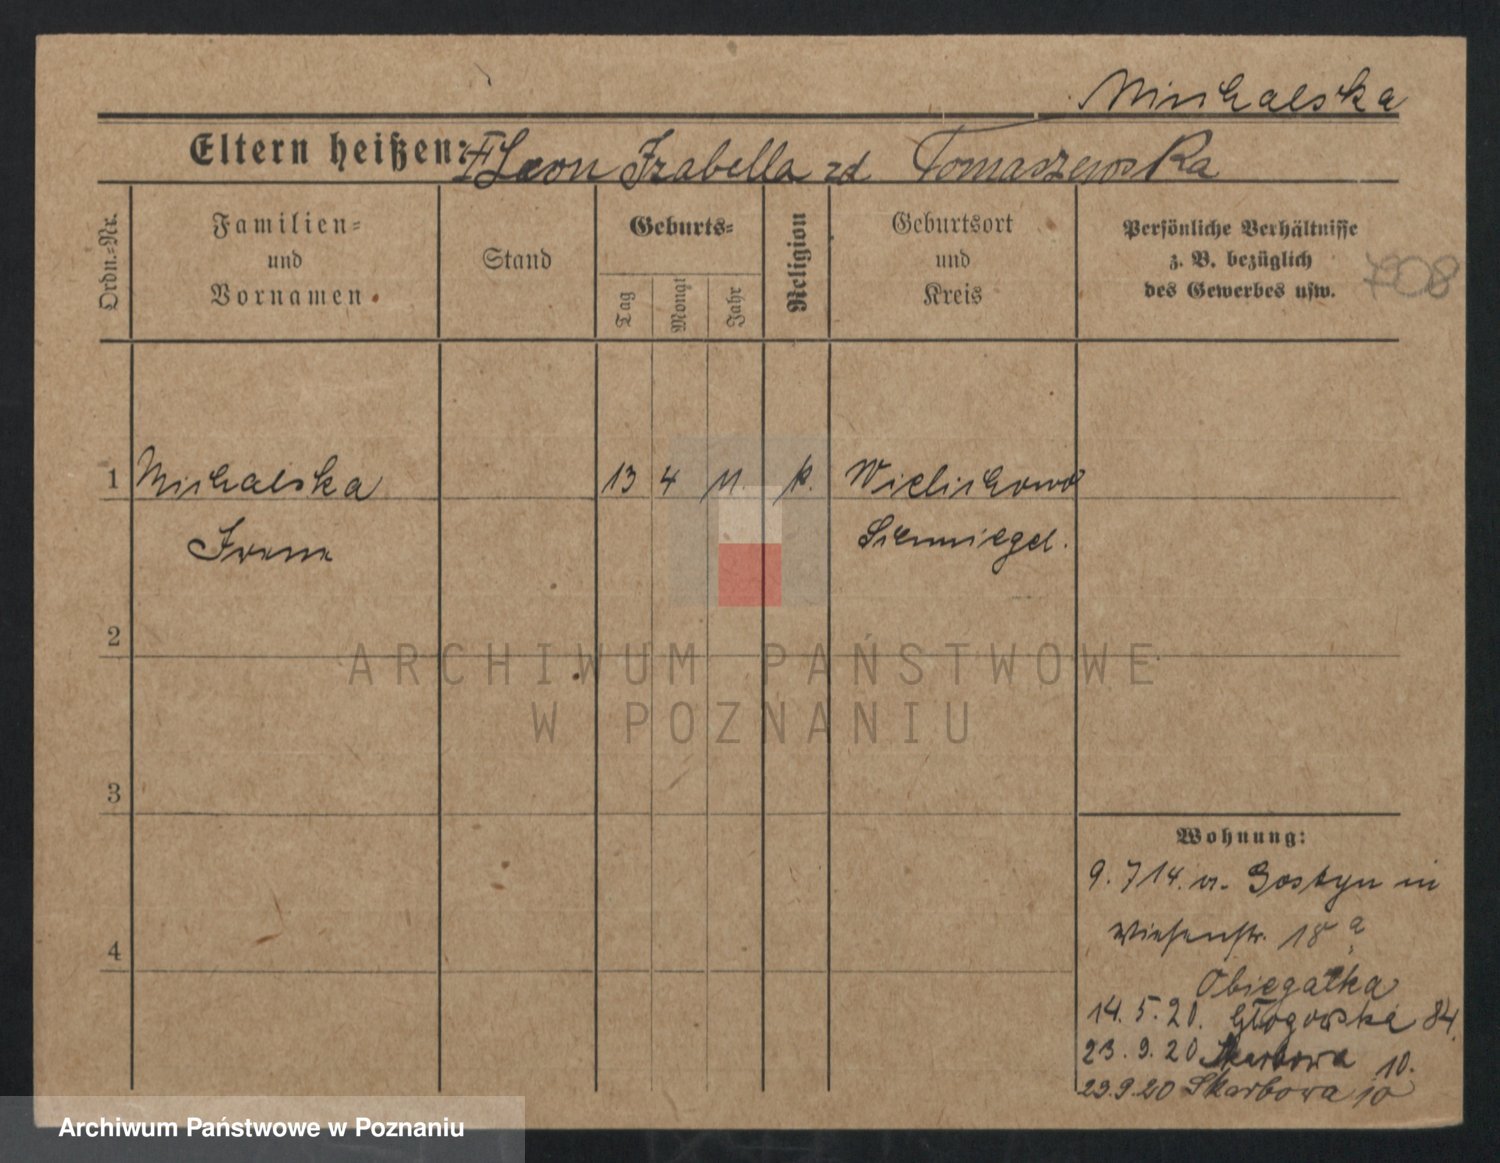 Michalska
Eltern heißen: Leon Izabella zd Tomaszewska
Ordn.=Nr.
Familien=
und
Vornamen
Stand
Geburts=
Tag
Monat
Jahr
Religion
Geburtsort
und
Kreis
Persönliche Verhältnisse
z. B. bezüglich
des Gewerbes usw.
708
1 Michalska 13 4 11. k. Wielichowo
Irena Schmiegel.
2
3
4
Wohnung:
9. 7 14. v. Gostyn in
Wiesenstr. 18 a
Obiegałka
14. 5. 20. Głogowska 84.
23. 9. 20 Skarbowa 10.
23.9.20 Skarbowa 10
ARCHIWUM PAŃSTWOWE
W POZNANIU
Archiwum Państwowe w Poznaniu